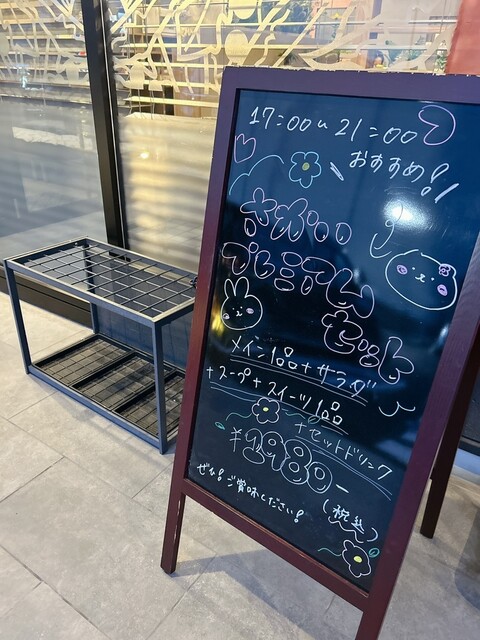 17:00〜21:00
おすすめ!
プレミアム
セット
メイン1品+サラダ
+スープ+スイーツ1品
+セットドリンク
¥3980-
(税込)
ぜひ!ご賞味ください!